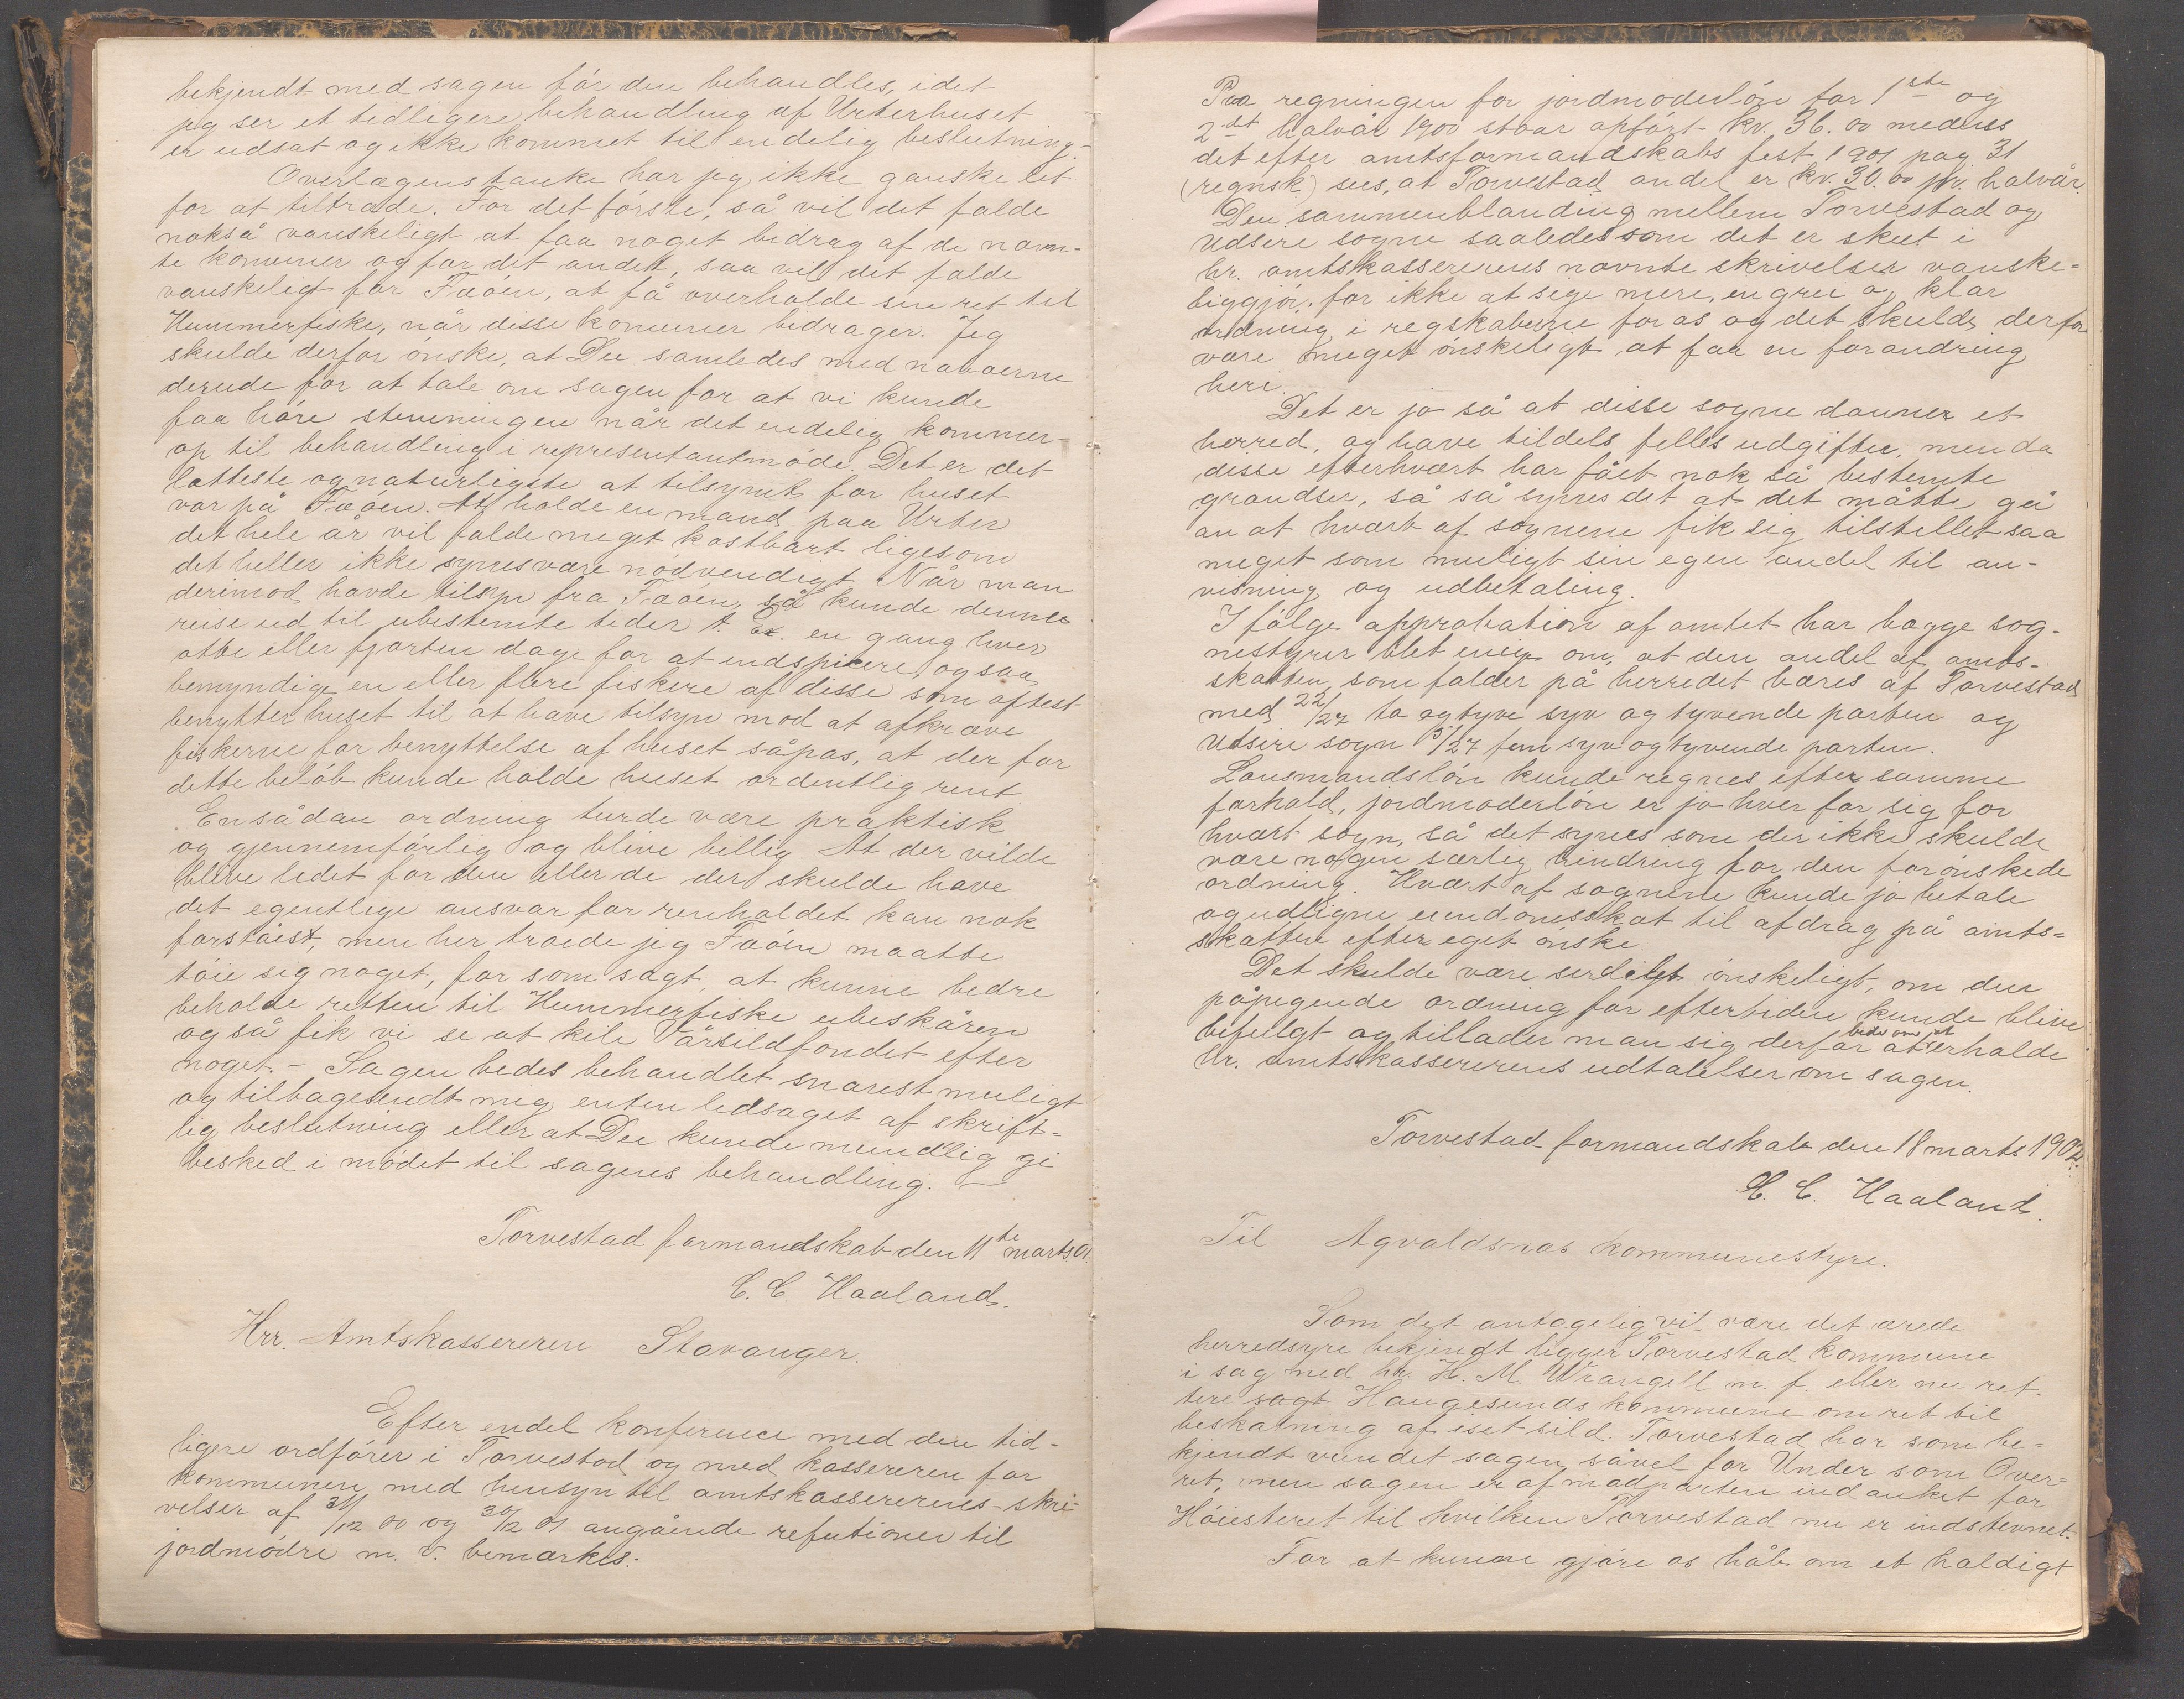 bekjendt med sagen før den behandles, idet
jeg ser et tidligere behandling af Urterhuset
er udsat og ikke kommet til endelig beslutning.-
Overlægens tanke har jeg ikke ganske let
for at tiltræde. For det første, så vil det falde
nokså vanskeligt at faa noget bidrag af de nævn-
te komuner og for det andet, saa vil det falde
vanskeligt for Fæøen, at få overholde sin ret til
Hummerfiske, når disse komuner bidrager. Jeg
skulde derfor ønske, at De samledes med naboerne
derude for at tale om sagen for at vi kunde
faa høre stemningen når det endelig kommer
op til behandling i representantmøde. Det er det
letteste og naturligste at tilsynet for huset
var på Fæøen. At holde en mand paa Urter
det hele år vil falde meget kostbart ligesom
det heller ikke synes være nødvendigt. Når man
derimod havde tilsyn fra Fæøen, så kunde denne
reise ud til ubestemte tider t. Ex. en gang hver
otte eller fjorten dage for at indspicere og saa
bemyndige en eller flere fiskere af disse som oftest
benytter huset til at have tilsyn mod at afkræve
fiskerne for benyttelse af huset såpas, at der for
dette beløb kunde holde huset ordentlig rent
En sådan ordning turde være praktisk
og gjennemførlig og blive billig. At der vilde
blive ledet for den eller de der skulde have
det egentlige ansvar for renholdet kan nok
forståest, men her troede jeg Fæøen maatte
tøie sig noget, for som sagt, at kunne bedre
beholde retten til Hummerfiske ubeskåren
og så fik vi se at kile Vårsildfondet efter
noget.- Sagen bedes behandlet snarest muligt
og tilbagesendt mig enten ledsaget af skrift-
lig beslutning eller at De kunde mundtlig gi
besked i mødet til sagens behandling. -
Torvestad formandskab den 11te marts 01.
C. C. Haaland.
Hrr. Amtskassereren Stavanger.
Efter endel konference med den tid-
ligere ordfører i Torvestad og med kassereren for
kommunen med hensyn til amtskassererens skri-
velser af 31/12 00 og 30/12 01 angående refutioner til
jordmødre m. v. bemærkes:
Paa regningen for jordmoderløn for 1ste og
2det halvår 1900 staar opført kr. 36.00 medens
det efter amtsformandskabs fest 1901 pag 31
(regnsk) sees, at Torvestad andel er kr. 30.00 pr. halvår.
Den sammenblanding mellem Torvestad og
Udsire sogne saaledes som det er skeet i
hr. amtskassererens nævnte skrivelser vanske-
liggjør, for ikke at sige mere, en grei og klar
ordning i regskaberne for os og det skulde derfor
være meget ønskeligt at faa en forandring
heri.
Det er jo så at disse sogne danner et
herred, og have tildels felles udgifter, men da
disse efterhvært har fået nok så bestemte
grændser, så så synes det at det måtte gå
an at hvært af sognene fik sig tilstillet saa
meget som muligt sin egen andel til an-
visning og udbetaling.
I følge approbation af amtet har begge sog-
nestyrer blet enig om, at den andel af amts-
skatten, som falder på herredet bæres af Torvestad
med 22/27 to og tyve syv og tyvende parten og
Utsire sogn 5/27 fem syv og tyvende parten.
Lensmandsløn kunde regnes efter samme
forhold, jordmoderløn er jo hver for sig for
hvært sogn, så det synes som der ikke skulde
være nogen særlig hindring for den forønskede
ordning. Hvært af sognene kunde jo betale
og udligne eiendomsskat til afdrag på amts-
skatten efter eget ønske.
Det skulde være serdeles ønskeligt, om den
påpegende ordning for eftertiden kunde blive
befulgt og tillader man sig derfor at bede om at erholde
Hr. amtskassererens udtalelser om sagen.
Torvestad formandskab den 18 marts 1902.
C. C. Haaland.
Til Agvaldsnæs kommunestyre.
Som det antagelig vil være det ærede
herredsyre bekjendt ligger Torvestad kommune
i sag med hr. H. M. Wrangell m. f. eller nu ret-
tere sagt Haugesunds kommune om ret til
beskatning af iset sild. Torvestad har som be-
kjendt vundet sagen såvel for Under som Over-
ret, men sagen er af modparten indanket for
Høiesteret til hvilken Torvestad nu er indstevnet.
For at kunne gjøre os håb om et haldigt